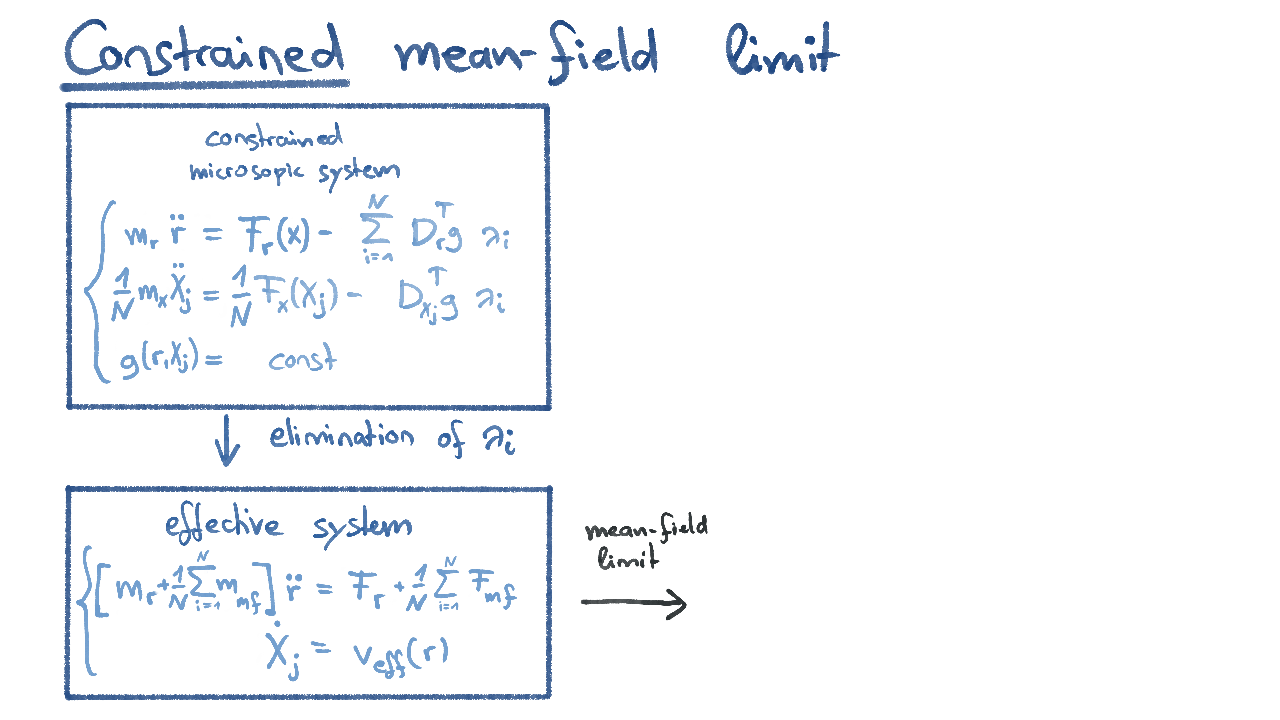 Constrained mean-field limit
constrained
microsopic system
m_r r̈ = F_r(x) - ∑_{i=1}^{N} D_r^T g λ_i
1/N m_x Ẍ_j = 1/N F_x(X_j) - D_{X_j}^T g λ_i
g(r, X_j) = const
↓ elimination of λ_i
effective system
[m_r + 1/N ∑_{i=1}^{N} m_{mf}] r̈ = F_r + 1/N ∑_{i=1}^{N} F_{mf}
Ẋ_j = v_{eff}(r)
mean-field
limit